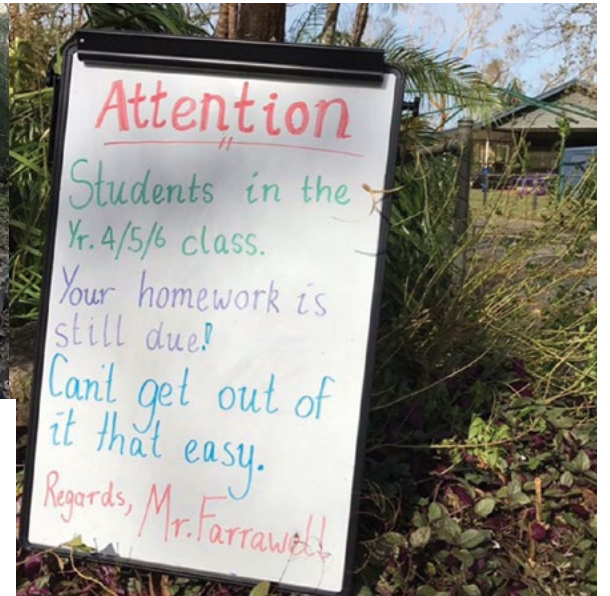 Attention
Students in the
Yr. 4/5/6 class.
Your homework is
still due!
Can't get out of
it that easy.
Regards, Mr. Farrawell